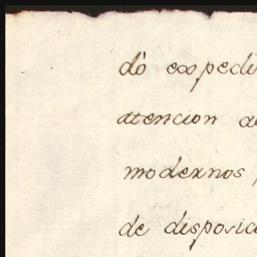 dò espedi
atencion a
modernos,
de disposic